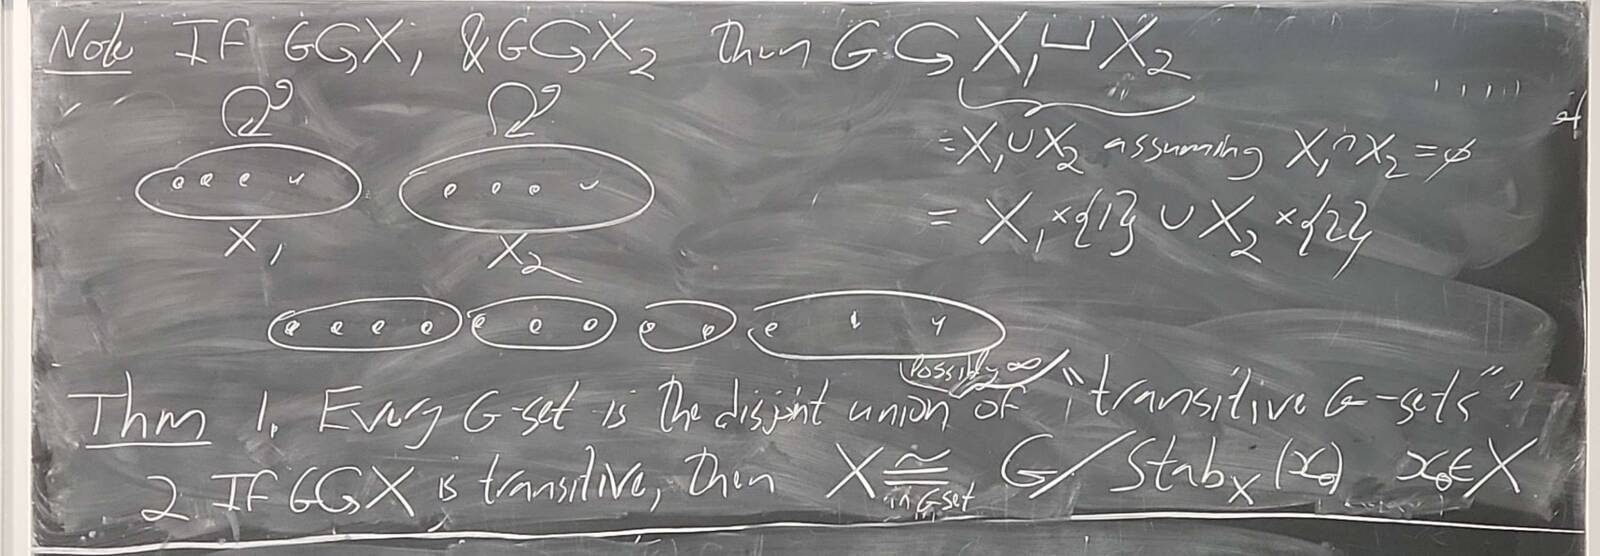 Note If G↻X₁ & G↻X₂ then G↻X₁⊔X₂
=X₁∪X₂ assuming X₁∩X₂=∅
= X₁×{1} ∪ X₂×{2}
X₁ X₂
possibly ∞
Thm 1. Every G-set is the disjoint union of "transitive G-sets"
2 If G↻X is transitive, then X ≅ G/Stab_X(x₀) x₀∈X
in G set